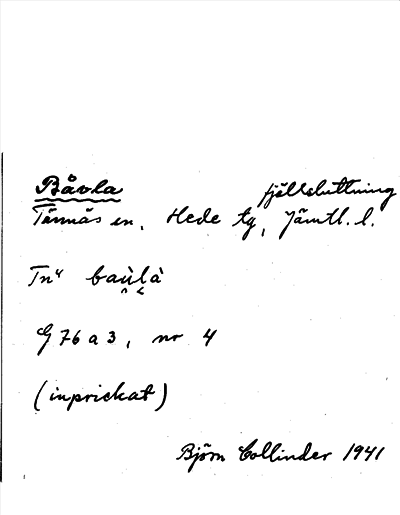 Båvla fjällsluttning
Tännäs sn, Hede tg, Jämtl. l.
Tnᵘ baùlà
G 76 a 3, nr 4
(inprickat)
Björn Collinder 1941